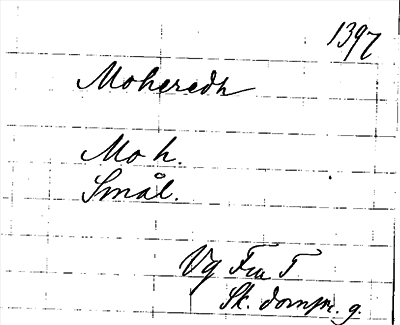 1397
Moheredh
Moh.
Smål.
Vg Fru T
Sk. dompr. g.